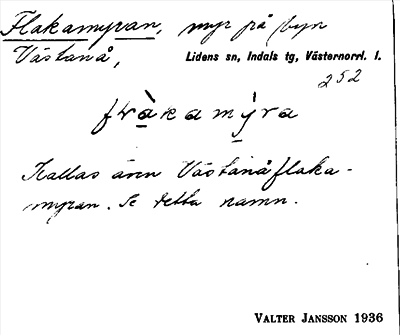 Flakamyran, myr på byn
Västanå,
Lidens sn, Indals tg, Västernorrl. l.
252
flàkamýra
Kallas även Västanåflaka-
myran. Se detta namn.
VALTER JANSSON 1936